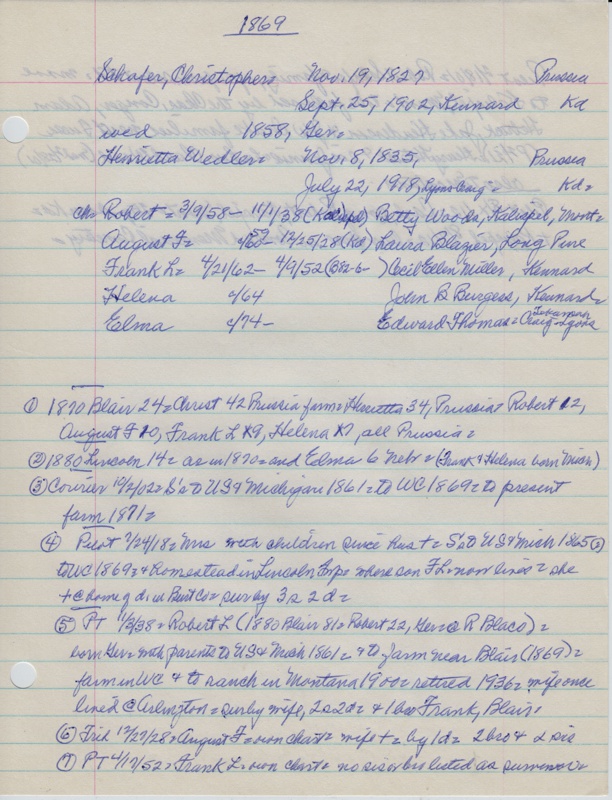 1869
Schafer, Christopher= Nov. 19, 1827 Prussia
Sept. 25, 1902, Kennard Kd
wed 1858, Ger=
Henrietta Wedler= Nov. 8, 1835, Prussia
July 22, 1918, Lyons Kd=
ch= Robert= 3/9/58- 11/1/38 Betty Woods, Kalispel, Mont=
August F= 12/25/28 (Kd) Laura Blazier, Long Pine
Frank L= 4/21/62- 4/9/52 Cecil Ellen Miller, Kennard
Helena c/64 John B Burgess, Kennard=
Elma c/74- Edward Thomas= Tekamah Craig-Lyons
① 1870 Blair 24= Christ 42 Prussia farm= Henrietta 34, Prussia= Robert 12,
August F 10, Frank L 9, Helena 7, all Prussia=
② 1880 Lincoln 14= as in 1870= and Elma 6 Nebr= (Frank & Helena born Mich)
③ Courier 10/2/02= S's to US & Michigan 1861= to WC 1869= to present
farm 1871=
④ Pilot 7/24/18= Mrs with children since hus += S's to US & Mich 1865
to WC 1869= & homestead in Lincoln Twp= where son FL= now lives= she
+ @ home of d. in Burt Co= sur by 3s 2d=
⑤ PT 11/3/38= Robert L (1880 Blair 81= Robert 22, Ger= @ R Blaco)=
born Ger= with parents to US & Mich 1861= & to farm near Blair (1869)=
farm in WC & to ranch in Montana 1900= retired 1936= wife once
lived @ Arlington= sur by wife, 2s 2d= & 1 bro Frank, Blair=
⑥ Trib 12/27/28= August F= own chart= wife += by 1d= 2 bro & 2 sis
⑦ PT 4/17/52= Frank L= own chart= no sis or bro listed as survivor=